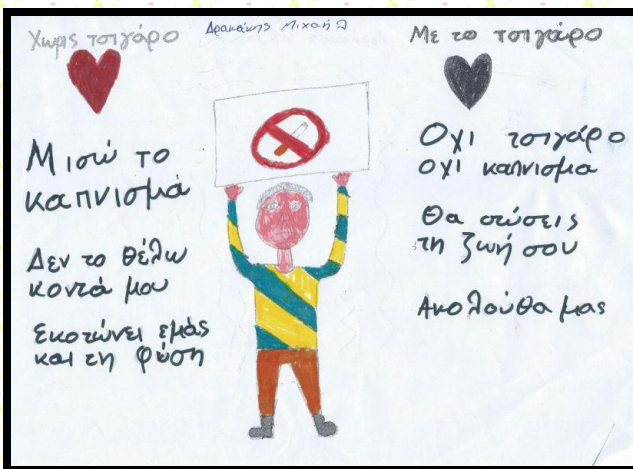 Χωρίς τσιγάρο
Δρακάκης Μιχαήλ
Με το τσιγάρο
Μισώ το
καπνισμα
Δεν το θέλω
κοντά μου
Σκοτώνει εμάς
και τη φύση
Οχι τσιγάρο
οχι καπνισμα
Θα σώσεις
τη ζωή σου
Ακολούθα μας